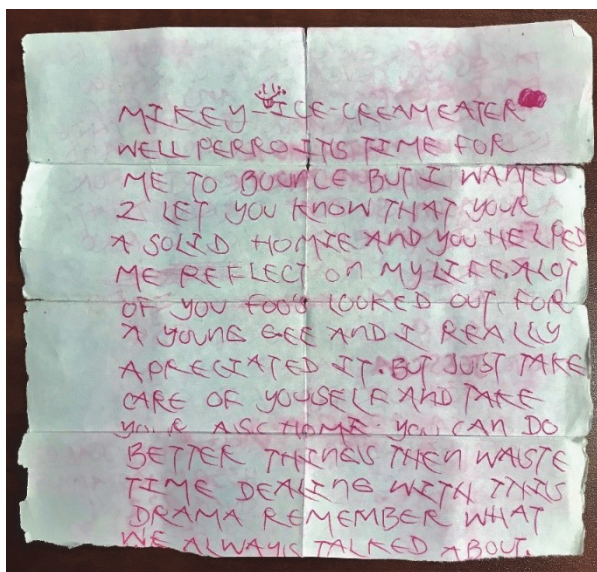 MIKEY-ICE-CREAMEATER
WELL PERRO ITS TIME FOR
ME TO BOUNCE BUT I WANTED
2 LET YOU KNOW THAT YOUR
A SOLID HOMIE AND YOU HELPED
ME REFLECT ON MY LIFE. ALOT
OF YOU FOOS LOOKED OUT FOR
A YOUNG GEE AND I REALLY
APRECIATED IT. BUT JUST TAKE
CARE OF YOUSELF AND TAKE
YOUR ASS HOME. YOU CAN DO
BETTER THINGS THEN WASTE
TIME DEALING WITH THIS
DRAMA REMEMBER WHAT
WE ALWAYS TALKED ABOUT.